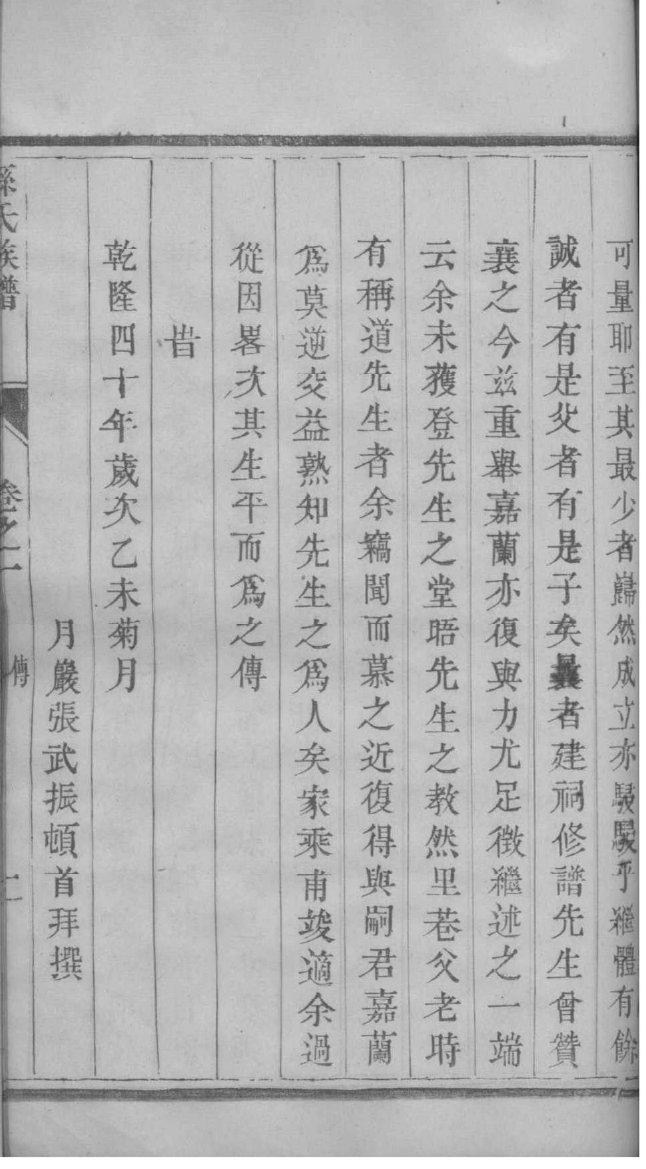 可量耶至其最少者巋然成立亦駸駸乎繼體有餘
誠者有是父者有是子矣曩者建祠修譜先生曾贊
襄之今兹重舉嘉蘭亦復與力尤足徵繼述之一端
云余未獲登先生之堂晤先生之教然里巷父老時
有稱道先生者余竊聞而慕之近復得與嗣君嘉蘭
爲莫逆交益熟知先生之爲人矣家乘甫竣適余過
從因畧次其生平而爲之傳
旹
乾隆四十年歲次乙未菊月
月巖張武振頓首拜撰
孫氏族譜
卷之二
傳
二